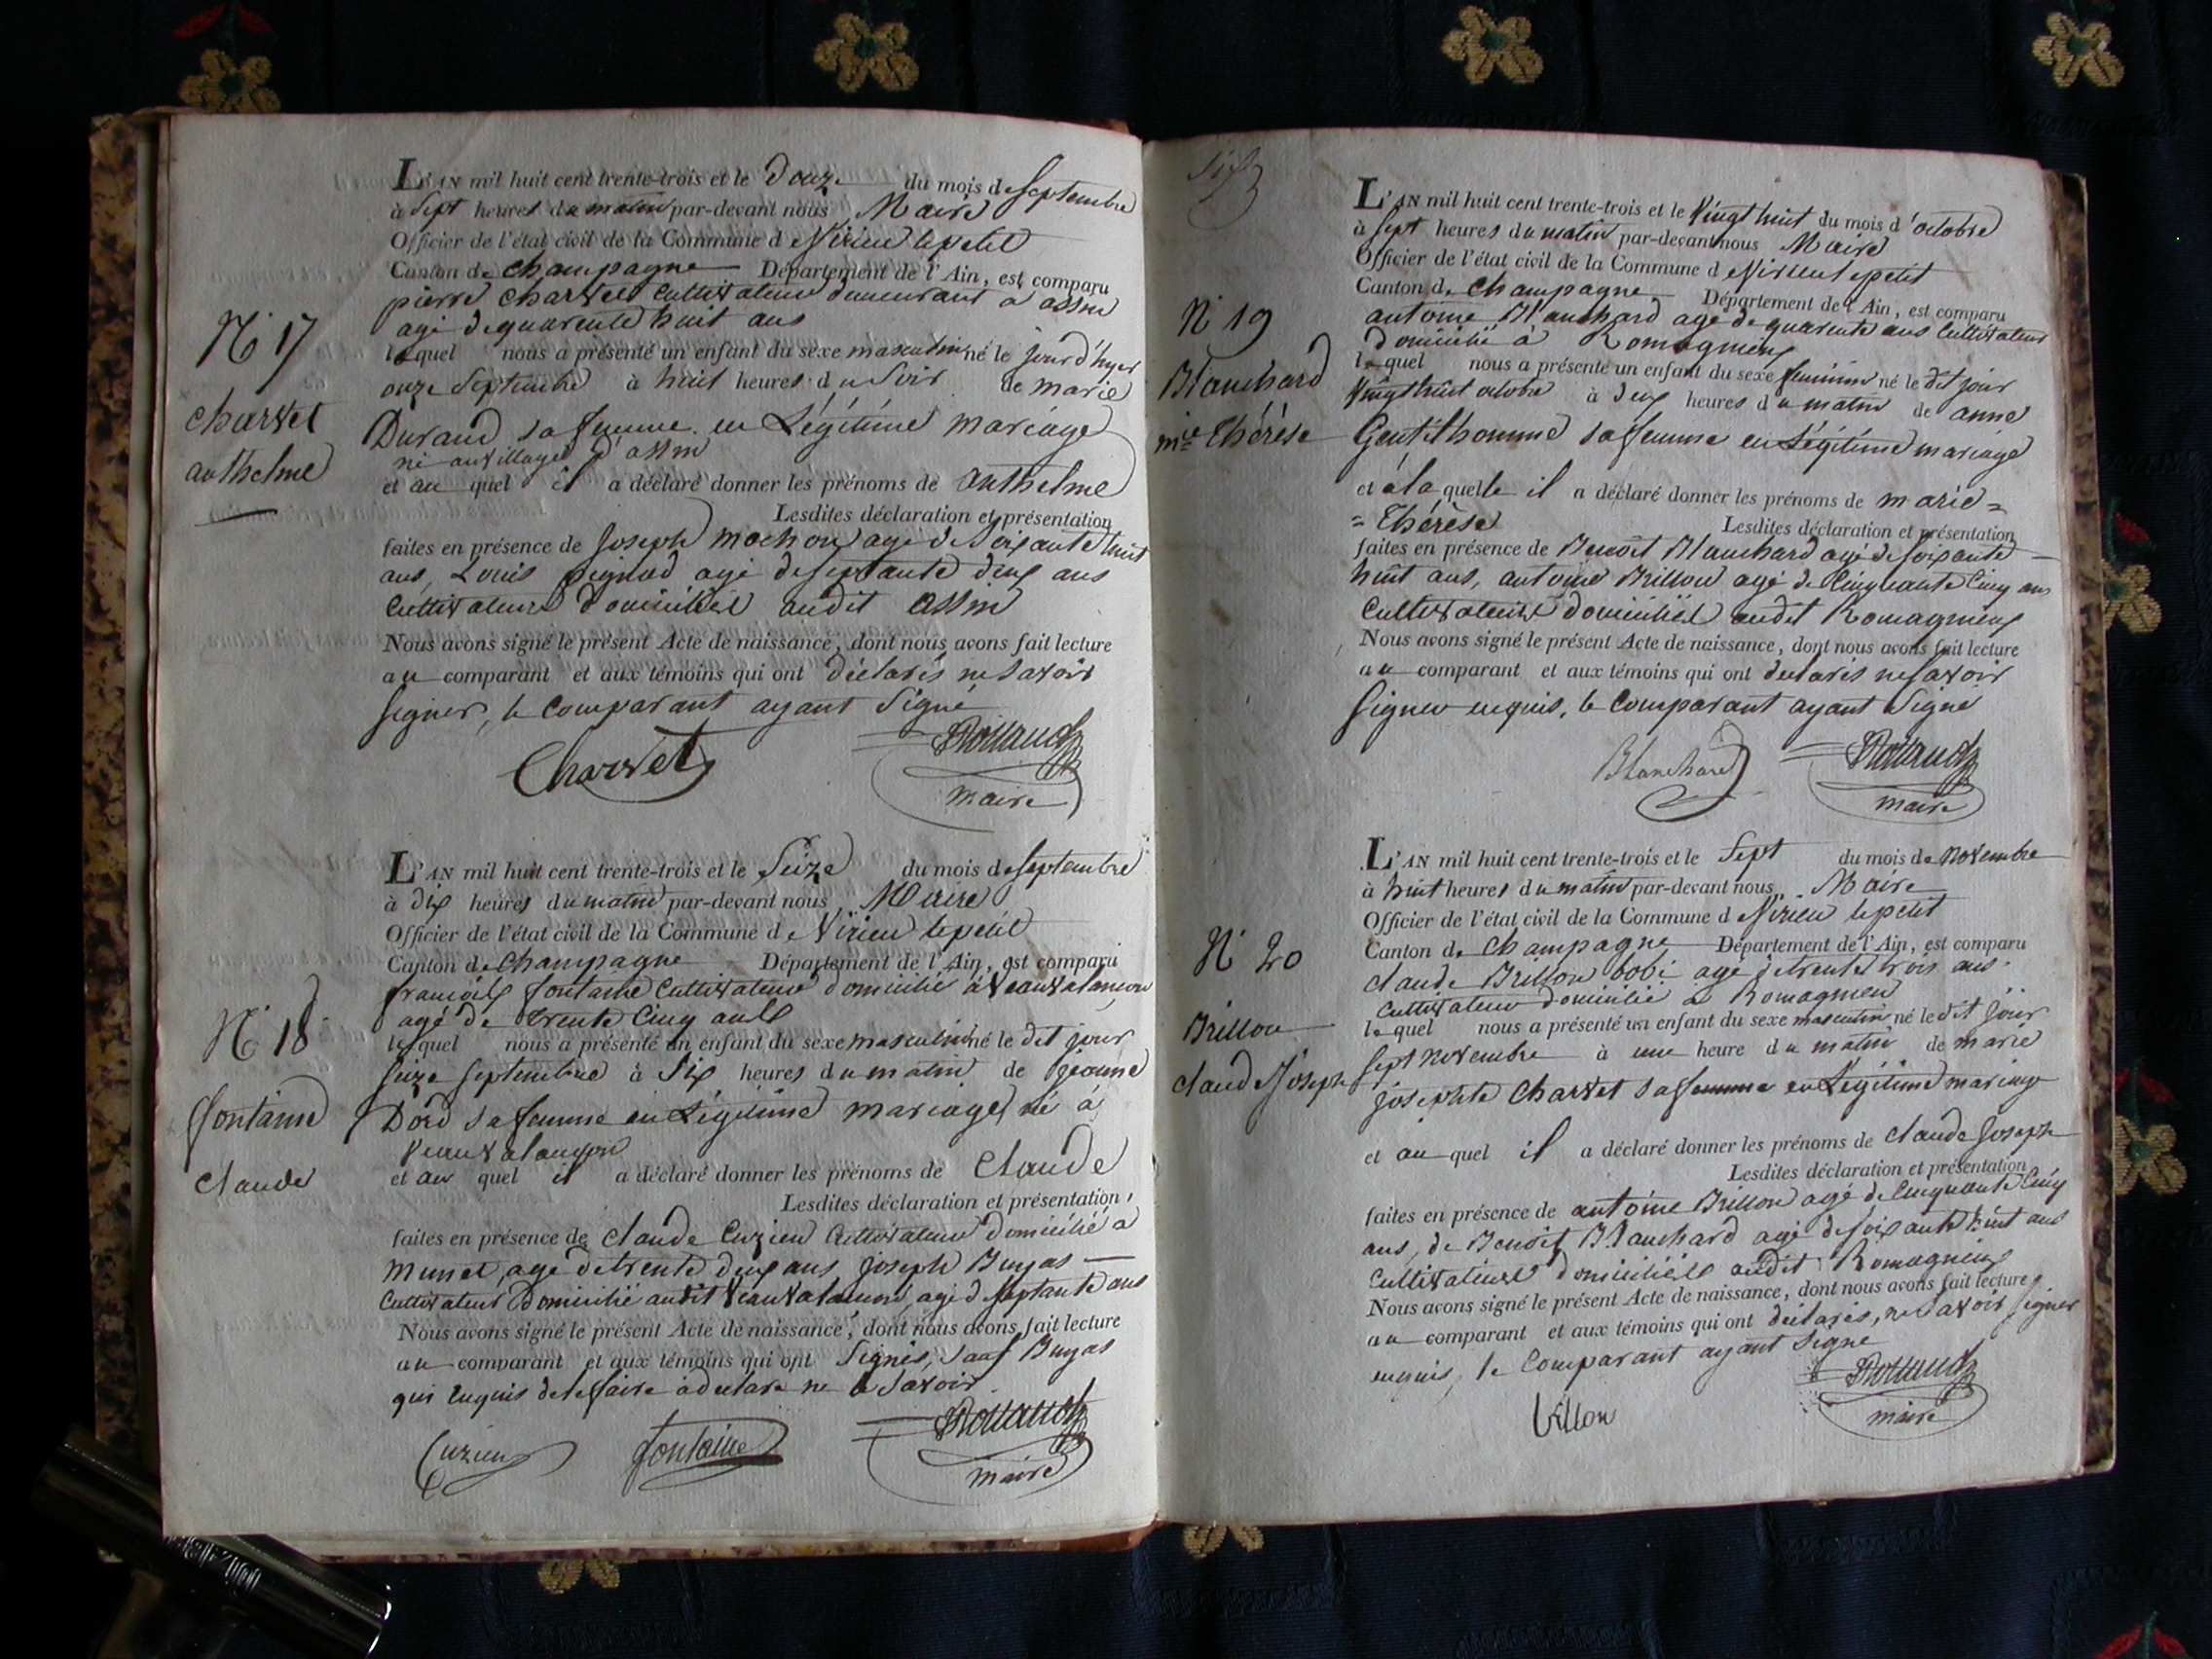 N° 17
Charvet
anthelme
L'AN mil huit cent trente-trois et le Douze du mois de Septembre
à Sept heures du matin par-devant nous Maire
Officier de l'état civil de la Commune de Virieu le petit
Canton de Champagne Département de l'Ain, est comparu
pierre Charvet Cultivateur demeurant a assin
agé de quarente huit ans
lequel nous a présenté un enfant du sexe masculin né le jour d'hyer
onze Septembre à huit heures du Soir de marie
Durand sa femme en Légitime mariage
né au village d'assin
et au quel il a déclaré donner les prénoms de anthelme
Lesdites déclaration et présentation
faites en présence de Joseph mochon agé de Soixante huit
ans, Louis pignod agé de septante deux ans
Cultivateurs domiciliés audit assin
Nous avons signé le présent Acte de naissance, dont nous avons fait lecture
au comparant et aux témoins qui ont déclarés ne Savoir
signer, le Comparant ayant Signé
Charvet
maire
N° 18
fontaine
Claude
L'AN mil huit cent trente-trois et le Seize du mois de Septembre
à dix heures du matin par-devant nous Maire
Officier de l'état civil de la Commune de Virieu le petit
Canton de Champagne Département de l'Ain, est comparu
françois fontaine Cultivateur domicilié à
agé de trente Cinq ans
lequel nous a présenté un enfant du sexe masculin né le dit jour
seize septembre à Six heures du matin de jeanne
Dord sa femme en Légitime mariage, né à
et au quel il a déclaré donner les prénoms de Claude
Lesdites déclaration et présentation
faites en présence de Claude Cuzieu Cultivateur domicilié a
Munet, agé de trente deux ans Joseph Buyas
Cultivateur domicilié audit agé de septante ans
Nous avons signé le présent Acte de naissance, dont nous avons fait lecture
au comparant et aux témoins qui ont Signés, sauf Buyas
qui enquis de le faire a declaré ne le Savoir
Cuzieu fontaine
maire
N° 19
Blanchard
mie Thérèse
L'AN mil huit cent trente-trois et le Vingt huit du mois d'octobre
à Sept heures du matin par-devant nous Maire
Officier de l'état civil de la Commune de Virieu le petit
Canton de Champagne Département de l'Ain, est comparu
antoine Blanchard agé de quarente ans Cultivateur
domicilié à Romagnieux
lequel nous a présenté un enfant du sexe feminin né le dit jour
Vingt huit octobre à deux heures du matin de anne
Gentilhomme sa femme en Légitime mariage
et à la quelle il a déclaré donner les prénoms de marie =
= Thérèse
Lesdites déclaration et présentation
faites en présence de Benoit Blanchard agé de soixante
huit ans, antoine Brillon agé de Cinquante Cinq ans
Cultivateurs domiciliés audit Romagnieux
Nous avons signé le présent Acte de naissance, dont nous avons fait lecture
au comparant et aux témoins qui ont declarés ne Savoir
Signer enquis, le Comparant ayant Signé
Blanchard
maire
N° 20
Brillon
Claude Joseph
L'AN mil huit cent trente-trois et le Sept du mois de Novembre
à huit heures du matin par-devant nous Maire
Officier de l'état civil de la Commune de Virieu le petit
Canton de Champagne Département de l'Ain, est comparu
Claude Brillon bobi agé de trente trois ans
Cultivateur domicilié a Romagnieu
lequel nous a présenté un enfant du sexe masculin né le dit jour
sept Novembre à une heure du matin de marie
josephte Charvet sa femme en Légitime mariage
et au quel il a déclaré donner les prénoms de Claude Joseph
Lesdites déclaration et présentation
faites en présence de antoine Brillon agé de Cinquante Cinq
ans, de Benoit Blanchard agé de soixante huit ans
Cultivateurs domiciliés audit Romagnieux
Nous avons signé le présent Acte de naissance, dont nous avons fait lecture
au comparant et aux témoins qui ont déclarés, ne Savoir signer
enquis, le Comparant ayant Signé
maire